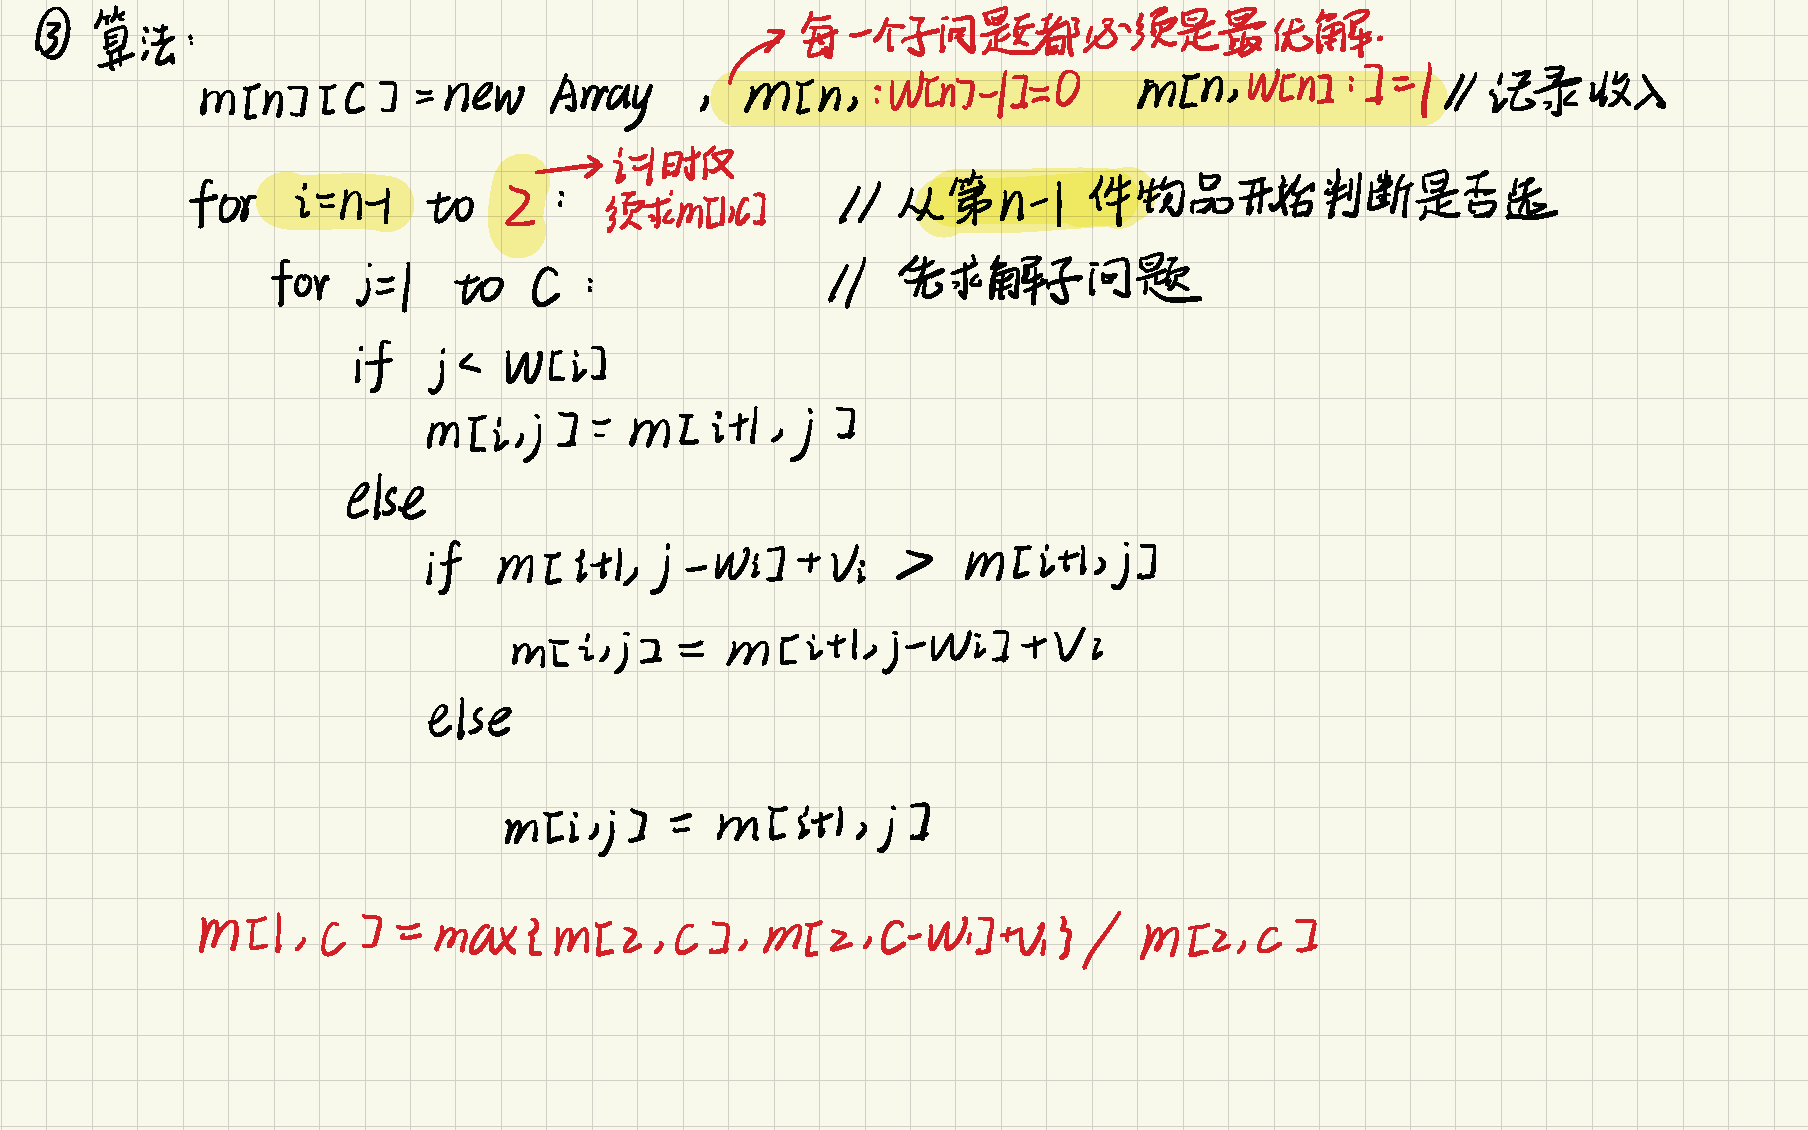 ③ 算法:
每一个子问题都必须是最优解.
m[n][C]=new Array , m[n, :W[n]-1]=0 m[n,W[n]:]=1 // 记录收入
for i=n-1 to 2 : // 从第n-1件物品开始判断是否选
i=1时仅
须求m[1,c]
for j=1 to C : // 先求解子问题
if j< W[i]
m[i,j]=m[i+1,j]
else
if m[i+1,j-wi]+vi > m[i+1,j]
m[i,j]=m[i+1,j-wi]+vi
else
m[i,j]=m[i+1,j]
m[1,c]=max{m[2,c],m[2,c-w1]+v1}/ m[2,c]